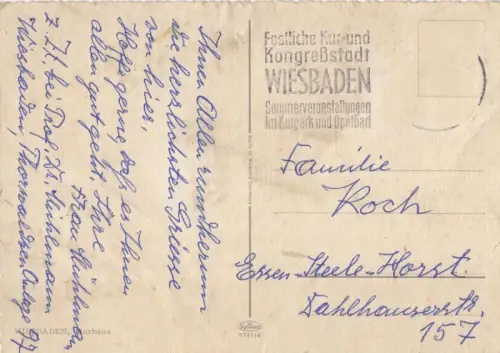 Ihnen Allen rundherum
die herzlichsten Grüsse
von hier.
Hoffe gerne, daß es Ihnen
allen gut geht. Ihre
Frau Mühlmann
z. Zt. bei Prof. Dr. Mühlmann
Wiesbaden, Thorwaldsen Anlage 97
Festliche Kur-und
Kongreßstadt
WIESBADEN
Sommerveranstaltungen
im Kurpark und Opelbad
Familie
Koch
Essen-Steele-Horst.
Dahlhauserstr.
157
WIESBADEN, Kurhaus